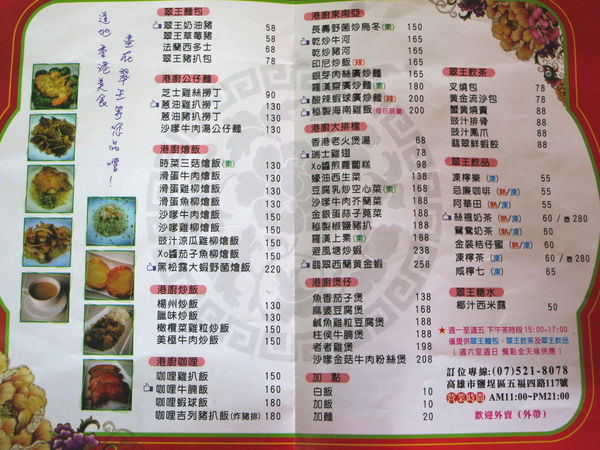 壹瓦翠王等您品嚐！
道地香港美食
翠王麵包
翠王奶油豬 58
翠王草莓豬 58
法蘭西多士 68
翠王豬扒包 68
港廚公仔麵
芝士雞絲撈丁 90
蔥油雞扒撈丁 130
蔥油豬扒撈丁 130
沙嗲牛肉湯公仔麵 130
港廚燴飯
時菜三菇燴飯(素) 130
滑蛋牛肉燴飯 150
滑蛋雞柳燴飯 150
滑蛋魚柳燴飯 150
沙嗲牛肉燴飯 150
沙嗲雞柳燴飯 150
豉汁涼瓜雞柳燴飯 150
Xo醬茄子魚柳燴飯 150
黑松露大蝦野菌燴飯 220
港廚炒飯
楊州炒飯 150
臘味炒飯 150
橄欖菜雞粒炒飯 150
美極牛肉炒飯 150
港廚咖哩
咖哩雞扒飯 150
咖哩牛腩飯 160
咖哩蝦球飯 180
咖哩吉列豬扒飯(炸豬排) 180
港廚東南亞
長壽野菌炒烏冬(素) 150
乾炒牛河 165
乾炒豬河 165
印尼炒飯(辣) 165
銀芽肉絲廣炒麵 165
羅漢齋廣炒麵(素) 180
酸辣蝦球廣炒麵(辣) 200
秘製海南雞飯(每日限量) 200
港廚大排檔
香港老火煲湯 68
瑞士雞翅 78
Xo醬煎蘿蔔糕 98
蠔油西生菜 138
豆腐乳炒空心菜(素) 168
沙嗲牛肉芥蘭菜 188
金銀蛋蒜子莧菜 188
秘製椒鹽豬扒 188
羅漢上素(素) 188
避風塘炒蝦 238
翡翠西蘭黃金蝦 258
港廚煲仔
魚香茄子煲 138
麻婆豆腐煲 138
鹹魚雞粒豆腐煲 188
柱侯牛腩煲 188
者者雞煲 198
沙嗲金菇牛肉粉絲煲 208
加點
白飯 10
加飯 10
加麵 20
翠王飲茶
叉燒包 78
黃金流沙包 78
蟹黃燒賣 88
豉汁排骨 88
豉汁鳳爪 88
翡翠鮮蝦餃 88
翠王飲品
凍檸樂(凍) 50
忌廉咖啡(熱/凍) 50
阿華田(熱/凍) 50
絲襪奶茶(熱/凍) 60/壺280
鴛鴦奶茶(熱/凍) 60
金裝桔仔蜜(熱/凍) 60
凍檸茶(凍) 60/壺280
咸檸七(凍) 65
翠王糖水
椰汁西米露 50
★週一至週五 下午茶時段15:00~17:00
僅提供翠王麵包、翠王飲茶及翠王飲品
(週六至週日 餐點全天候供應)
訂位專線:(07)521-8078
高雄市鹽埕區五福四路117號
營業時間 AM11:00~PM21:00
歡迎外賣(外帶)